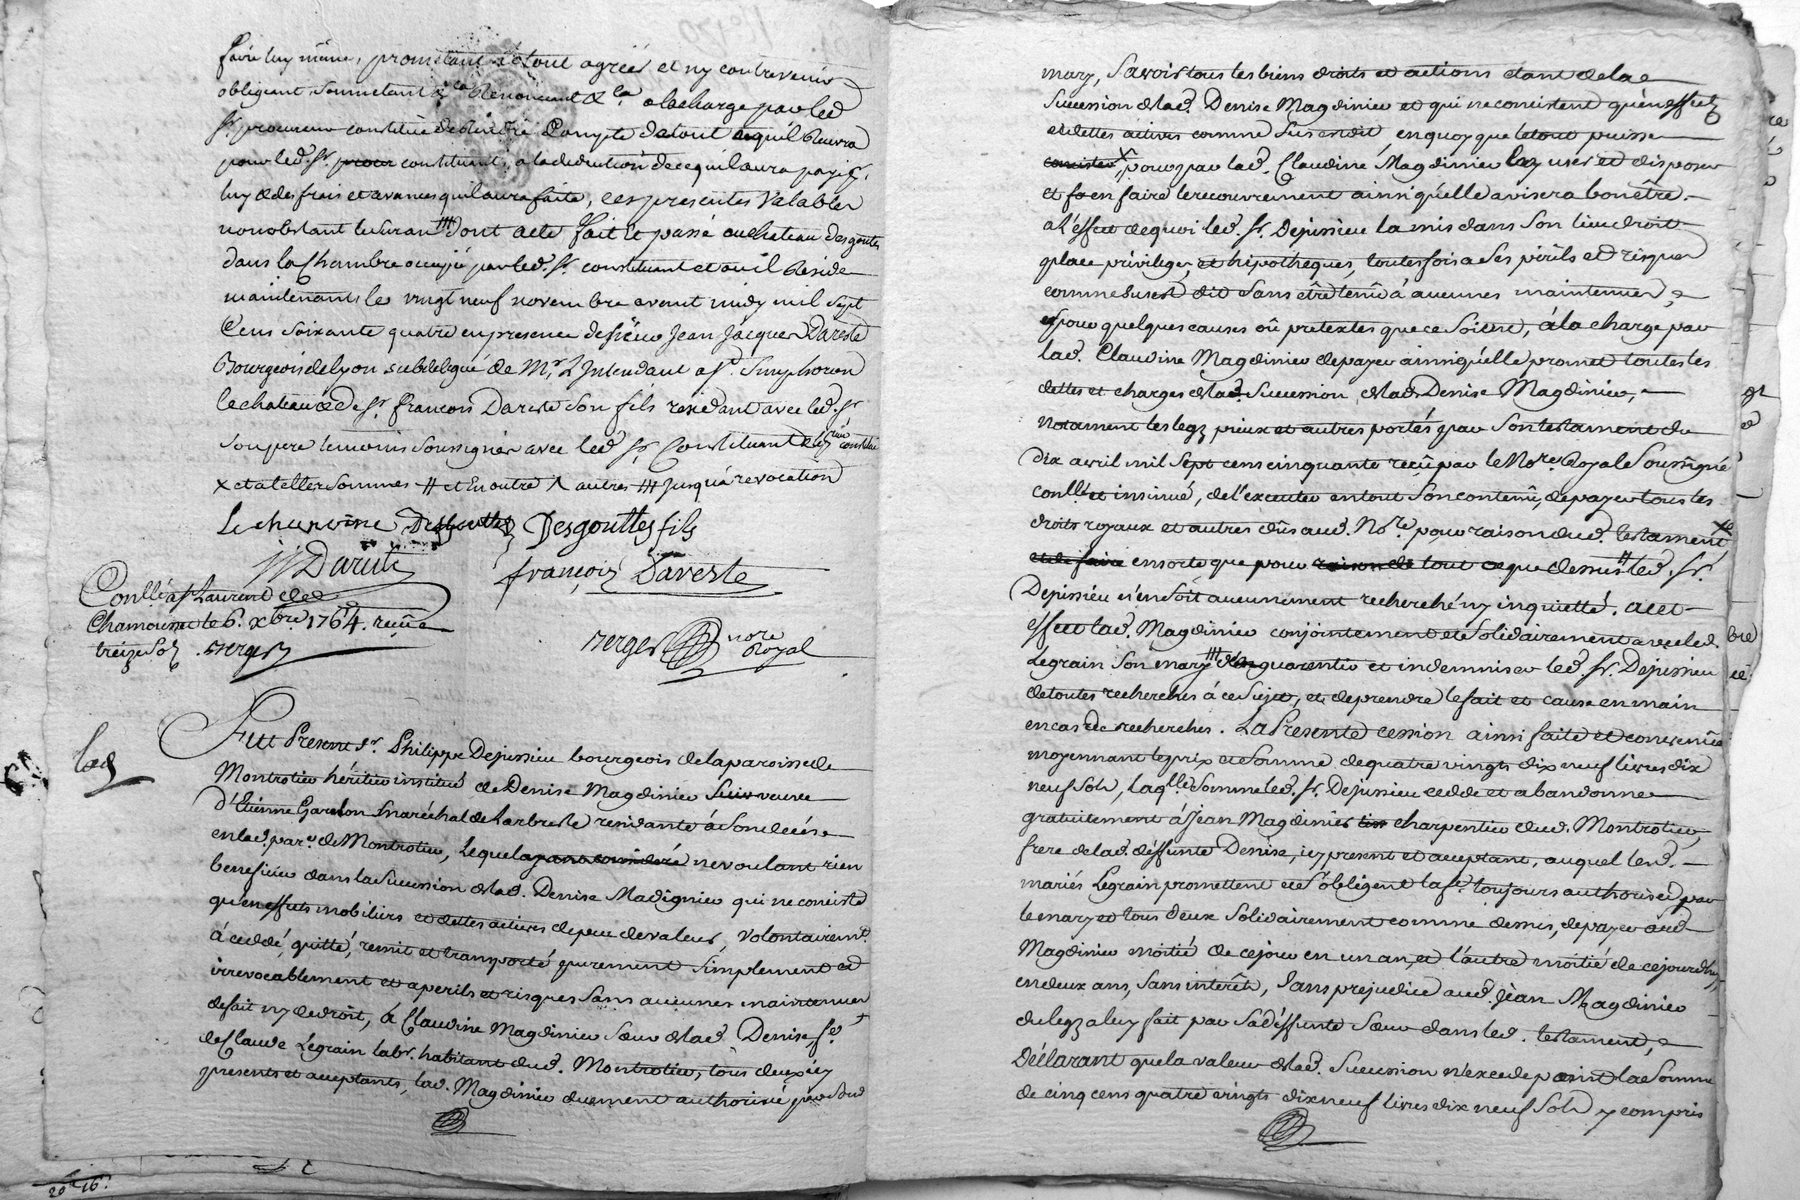 faire luy même, promettant le tout agréer et ny contrevenir
obligeant, soumetant &.ca Renonceant &.ca a la charge par led
Sr. procureur constitué de Rendre Compte de tout ce qu'il Recevra
pour led. Sr. constituant, a la deduction de ce qu'il aura payé
luy & des frais et avances qu'il aura faite, ces presentes Valables
nonobstant le suran ⧻ dont acte fait et passé au chateau des goutes
dans la Chambre occupée par led. Sr. constituant et ou il Reside
maintenant le vingt neuf novembre avant midy mil sept
Cens soixante quatre en presence de sieur Jean Jacques Dareste
Bourgeois de Lyon subdelegué de Mr. L'Intendant a St. Simphorien
le chateau & de Sr. françois Dareste son fils residant avec led. Sr.
son pere temoins soussignés avec led Sr. Constituant
x et a telles sommes ⧺ et En outre autres ⧻ jusqu'a revocation
Le chanoine Desgouttes Desgouttes fils
JJ Dareste
françois Dareste
Conllé a St Laurent de
Chamousset le 6. xbre 1764. reçu
treize Sols. Verger
Verger nore Royal
Fut Present Sr. Philippe Dejussieu bourgeois de la paroisse de
Montrotier héritier institué de Denise Magdinier veuve
d'Etienne Garelon maréchal de Larbresle residante à son decés
en lad. par. de Montrotier, Lequel ne voulant rien
beneficier dans la Succession de lad. Denise Madignier qui ne consiste
qu'en effets mobiliers et dettes actives de peu de valeur, Volontairemt.
à cedé, quitté, remit et transporté purement simplement et
irrevocablement et a perils et risques sans aucunes maintenues
de fait ny de droit, à Claudine Magdinier Sœur de lad Denise, fe.
de Claude Legrain labr. habitant dud. Montrotier, tous deux icy
presents et acceptants, lad. Magdinier duement authorisée par Son
lad
mary, Savoir tous les biens droits et actions etant de la
Succession de lad. Denise Magdinier et qui ne consistent qu'en effets
et dettes actives comme Sus est dit, en quoy que le tout puisse
consister, pour par lad. Claudine Magdinier user et disposer
et en faire le recouvrement ainsi qu'elle avisera bon être.
a L'effet de quoi led. Sr. Dejussieu la mis dans Son lieu droit
place privileges, et hipotheques, toutesfois a Ses périls et risques
comme Susest dit Sans être tenu à aucunes maintenues,
pour quelques causes où pretextes que ce Soient, à la charge par
lad. Claudine Magdinier de payer ainsi qu'elle promet toutes les
dettes et charges de lad. Succession de lad Denise Magdinier,
notament les legs pieux et autres portés par Son testament du
Dix avril mil Sept cens cinquante reçû par le Nore. Royal Soussigné
conllé et insinué, de l'executer en tout Son contenû, de payer tous les
droits royaux et autres dûs aud. Nore. pour raison dud. testament
et de faire ensorte que pour raison de tout ce que dessus led. Sr.
Dejussieu n'en Soit aucunement recherché ny inquietté. a cet
effet lad. Magdinier conjointement et Solidairement avec led.
Legrain Son mary ⧻ guarentir et indemniser led. Sr. Dejussieu
de toutes recherches à ce Sujet, et de prendre le fait et cause en main
en cas de recherches. La Presente cession ainsi faite et convenüe
moyennant le prix et Somme de quatre vingts dix neuf livres dix
neuf Sols, laqlle. Somme led. Sr. Dejussieu cedde et abandonne
gratuitement à Jean Magdinier charpentier dud. Montrotier,
frere de lad. déffunte Denise, icy present et acceptant, auquel lesd.
mariés Legrain promettent et S'obligent la fe. toujours authorisée par
le mary et tous deux Solidairement comme dessus, de payer aud
Magdinier moitié de ce jour en un an, et l'autre moitié de ce jourd'huy
en deux ans, Sans interêts, Sans prejudice aud. Jean Magdinier
du legs a luy fait par Sa déffunte Sœur dans led. testament,
Déclarant que la valeur de lad. Succession n'excede point la Somme
de cinq cens quatre vingts dix neuf livres dix neuf Sols y compris